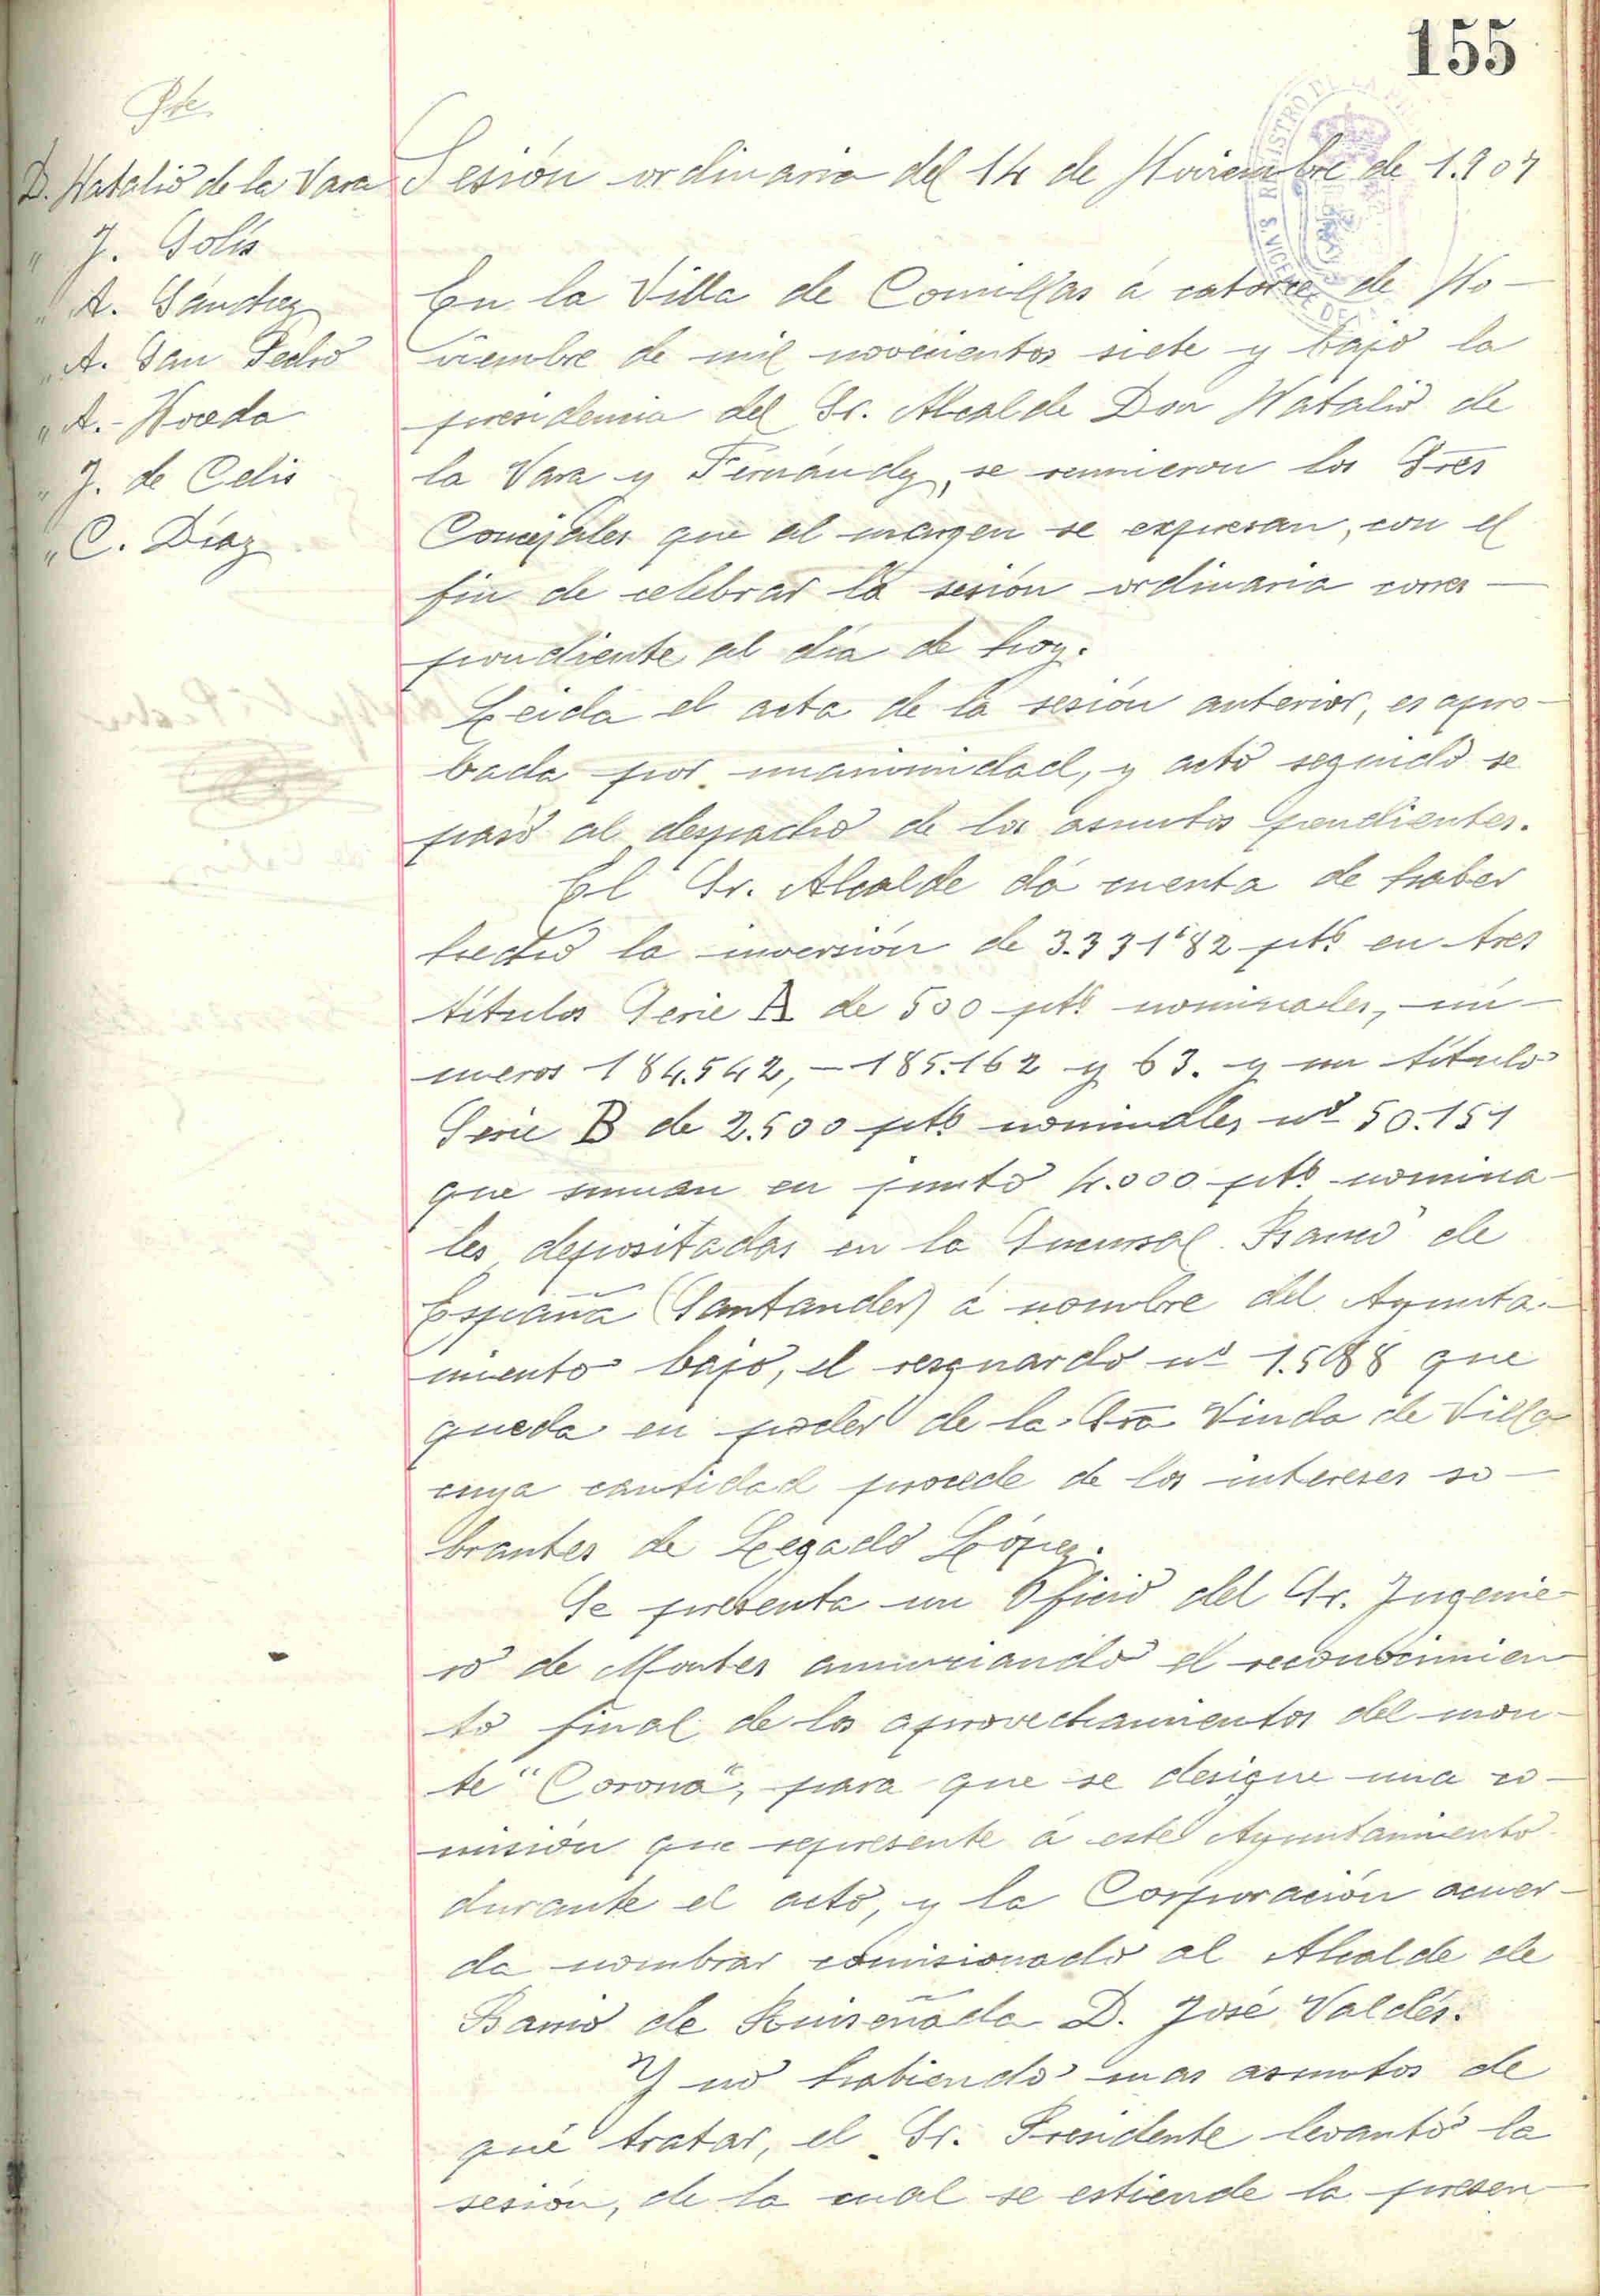 155
Pte
D. Natalio de la Vara
" J. Solís
" A. Sánchez
" A. San Pedro
" A. Noceda
" J. de Celis
" C. Díaz
Sesión ordinaria del 14 de Noviembre de 1.907
En la Villa de Comillas á catorce de No-
viembre de mil novecientos siete y bajo la
presidencia del Sr. Alcalde Don Natalio de
la Vara y Fernández, se reunieron los Sres
Concejales que al margen se expresan, con el
fin de celebrar la sesión ordinaria corres-
pondiente al día de hoy.
Leida el acta de la sesión anterior, es apro-
bada por unanimidad, y acto seguido se
pasó al despacho de los asuntos pendientes.
El Sr. Alcalde dá cuenta de haber
hecho la inversión de 3.331'82 pts en tres
títulos Serie A de 500 pts nominales, nú-
meros 184.542, - 185.162 y 63. y un título
Serie B de 2.500 pts nominales nº 50.151
que suman en junto 4.000 pts nomina-
les depositados en la Sucursal Banco de
España (Santander) á nombre del Ayunta-
miento bajo, el resguardo nº que
queda en poder de la Sra Viuda de Villa
cuya cantidad procede de los intereses so-
brantes de Legado López.
Se presenta un Oficio del Sr. Ingenie-
ro de Montes anunciando el reconocimien-
to final de los aprovechamientos del mon-
te "Corona", para que se designe una co-
misión que represente á este Ayuntamiento
durante el acto, y la Corporación acuer-
da nombrar comisionado al Alcalde de
Barrio de Ruiseñada D. José Valdés.
Y no habiendo mas asuntos de
qué tratar, el Sr. Presidente levantó la
sesión, de la cual se estiende la presen-